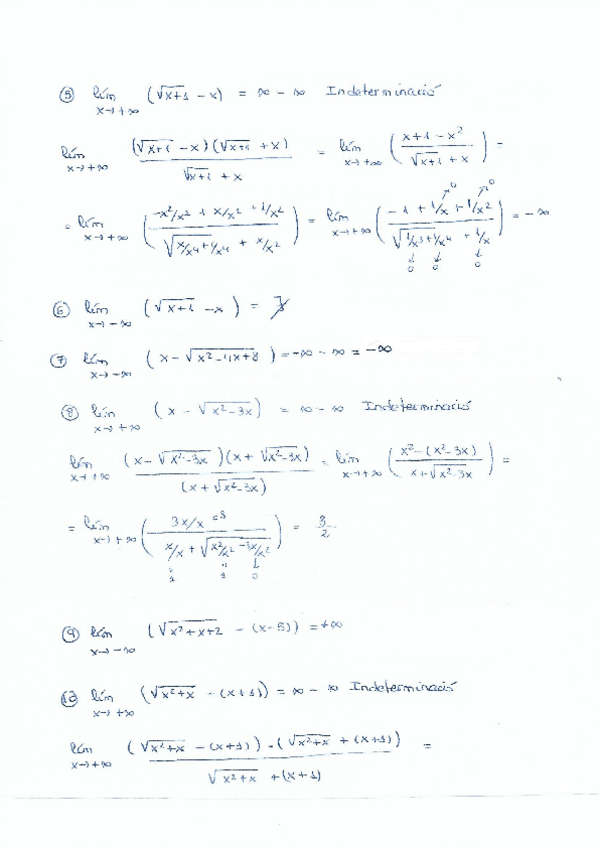 ⑤ lím x→+∞ (√(x+1) − x) = ∞ − ∞ Indeterminació
lím x→+∞ (√(x+1) − x)(√(x+1) + x) / (√(x+1) + x) = lím x→+∞ ((x+1−x²) / (√(x+1) + x)) =
= lím x→+∞ ((−x²/x² + x/x² + 1/x²) / (√(x/x⁴ + 1/x⁴) + x/x²)) = lím x→+∞ ((−1 + 1/x + 1/x²) / (√(1/x³ + 1/x⁴) + 1/x)) = −∞
0 0
0 0 0
⑥ lím x→−∞ (√(x+1) − x) = ∄
⑦ lím x→−∞ (x − √(x²−4x+8)) = −∞ − ∞ = −∞
⑧ lím x→+∞ (x − √(x²−3x)) = ∞ − ∞ Indeterminació
lím x→+∞ (x − √(x²−3x))(x + √(x²−3x)) / (x + √(x²−3x)) = lím x→+∞ ((x² − (x²−3x)) / (x + √(x²−3x))) =
= lím x→+∞ ((3x/x =3) / (x/x + √(x²/x² − 3x/x²))) = 3/2
1 1 0
⑨ lím x→−∞ (√(x²+x+2) − (x−5)) = +∞
⑩ lím x→+∞ (√(x²+x) − (x+1)) = ∞ − ∞ Indeterminació
lím x→+∞ (√(x²+x) − (x+1)) · (√(x²+x) + (x+1)) / (√(x²+x) + (x+1)) =